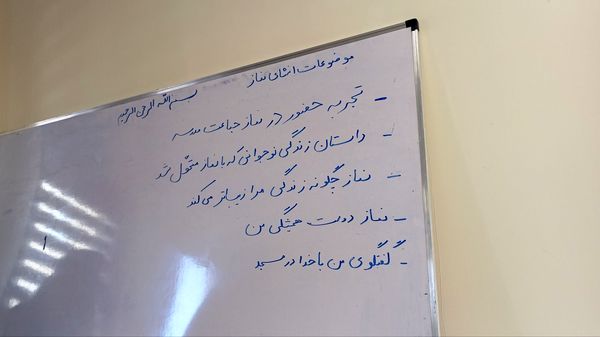 بسم الله الرحمن الرحیم
موضوعات انشای نماز
- تجربه حضور در نماز جماعت مدرسه
- داستان زندگی نوجوانی که با نماز متحوّل شد
- نماز چگونه زندگی مرا زیباتر می‌کند
- نماز دوست همیشگی من
- گفتگوی من با خدا در مسجد